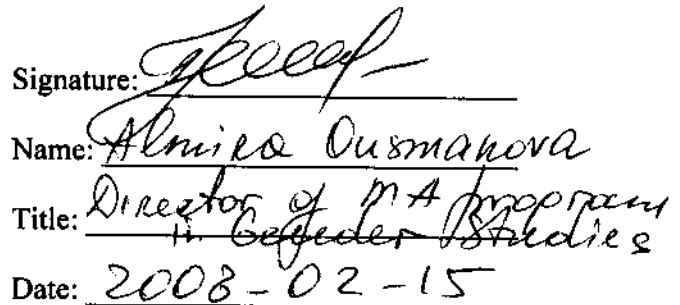 Signature:
Name: Almira Ousmanova
Title: Director of MA program
in Gender Studies
Date: 2008-02-15